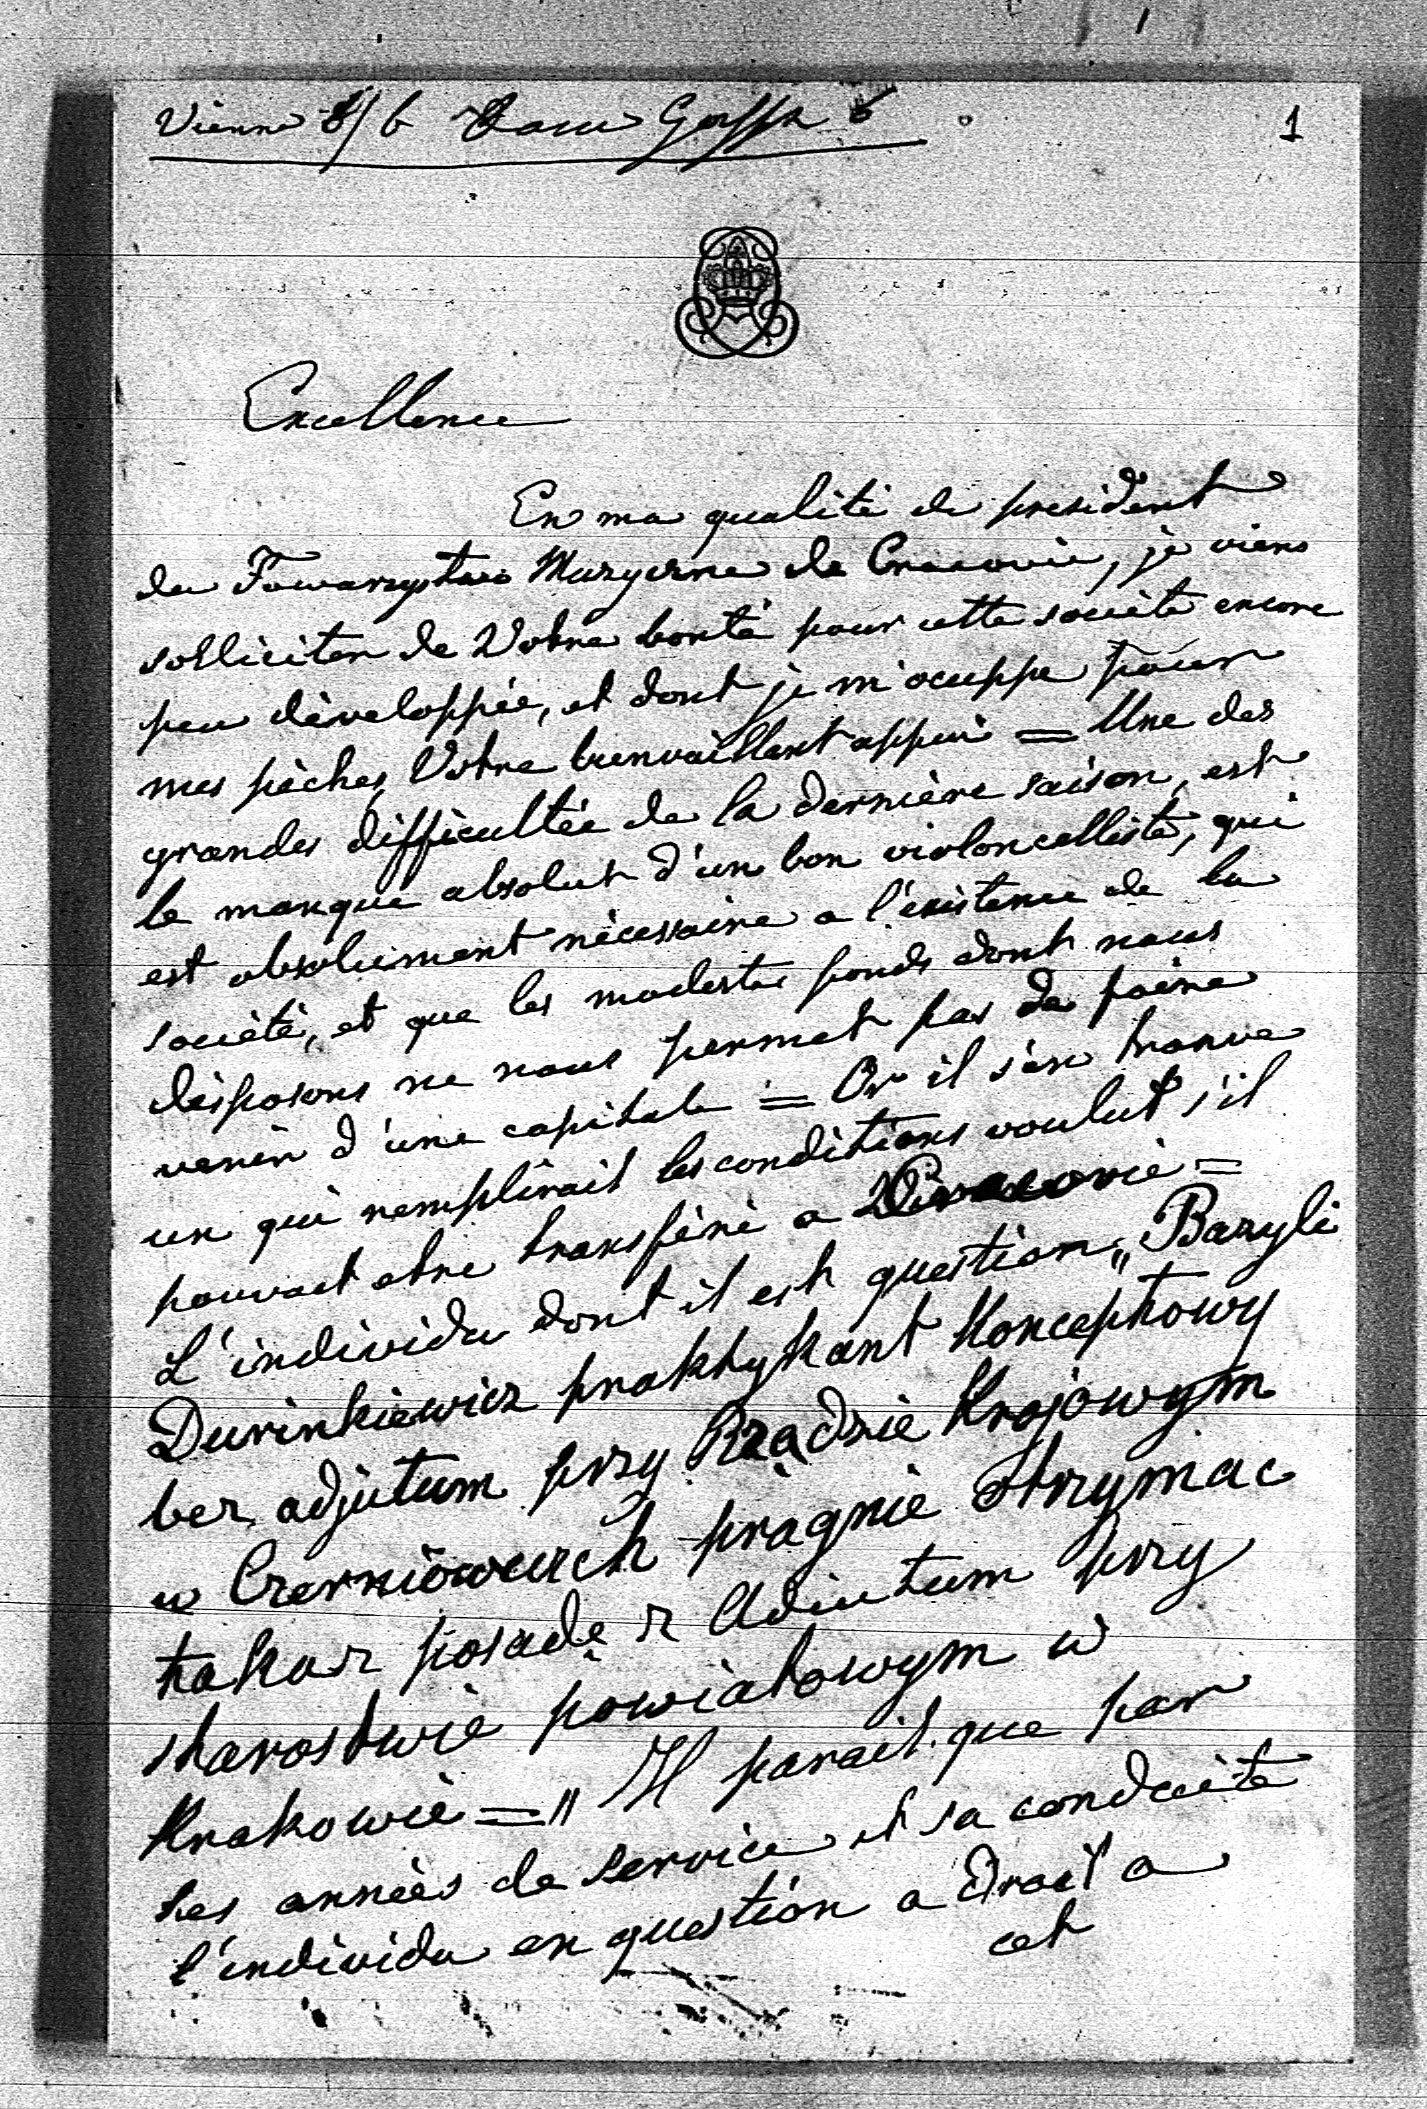 Vienne 8/6
1
Excellence
En ma qualité de président
du Towarzystwo Muzyczne de Cracovie, je viens
solliciter de Votre bonté pour cette societé encore
peu développée, et dont je m'ocuppe pour
mes pèches, Votre bienvaillant appui = Une des
grandes difficultée de la dernière saison, est
le manque absolut d'un bon violoncelliste, qui
est absolument nécessaire a l'éxistence de la
societé, et que les modestes fonds dont nous
disposons ne nous permet pas de faire
venir d'une capitale = Or il s'en trouve
un qui remplirait les conditions voulut s'il
pouvait etre transféré a Cracovie =
L'individu dont il est question „ Bazyli
Durinkiewicz praktykant Konceptowy
bez adjutum przy Rządzie Krajowym
w Czerniowcach pragnie otrzymac
posadę z Adiutum przy
starostwie powiatowym w
Krakowie = " Il parait que par
ses années de service et sa conduite
l'individu en question a droit a
cet